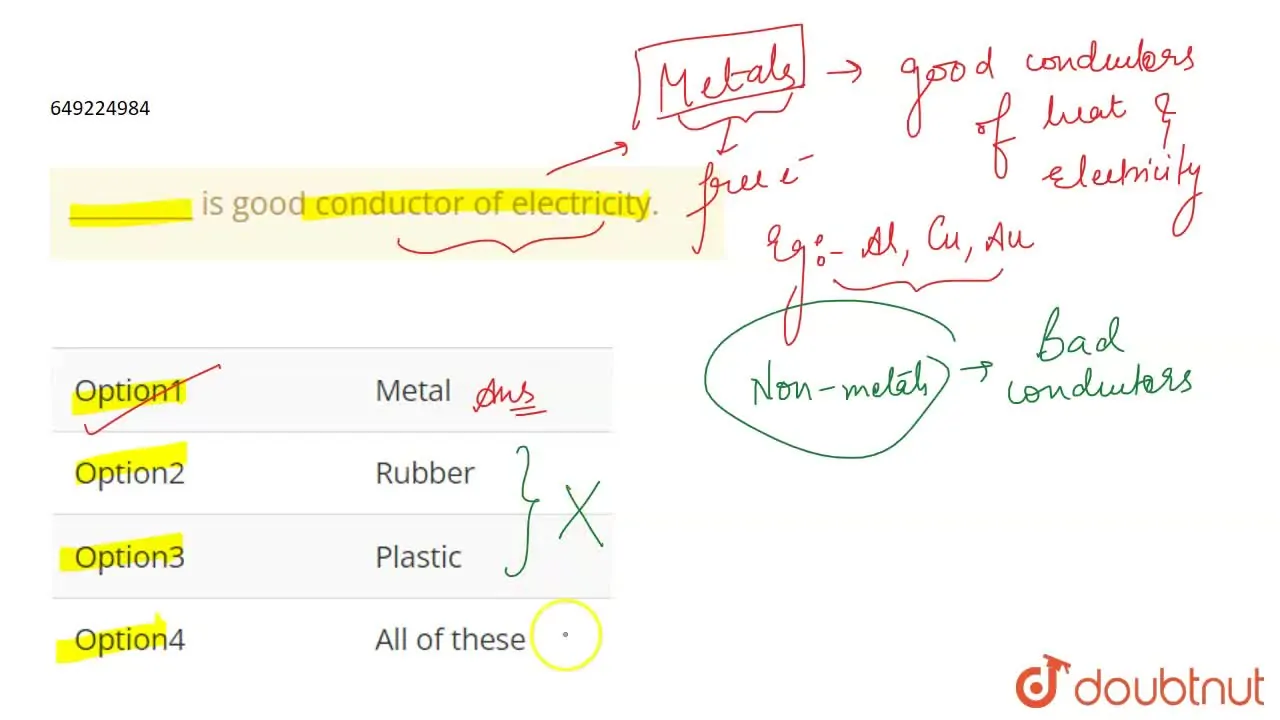 649224984
________ is good conductor of electricity.
Option1 Metal Ans
Option2 Rubber
Option3 Plastic X
Option4 All of these
Metals → good conductors
of heat &
electricity
free e⁻
Eg:- Al, Cu, Au
Non-metals → Bad
conductors
doubtnut